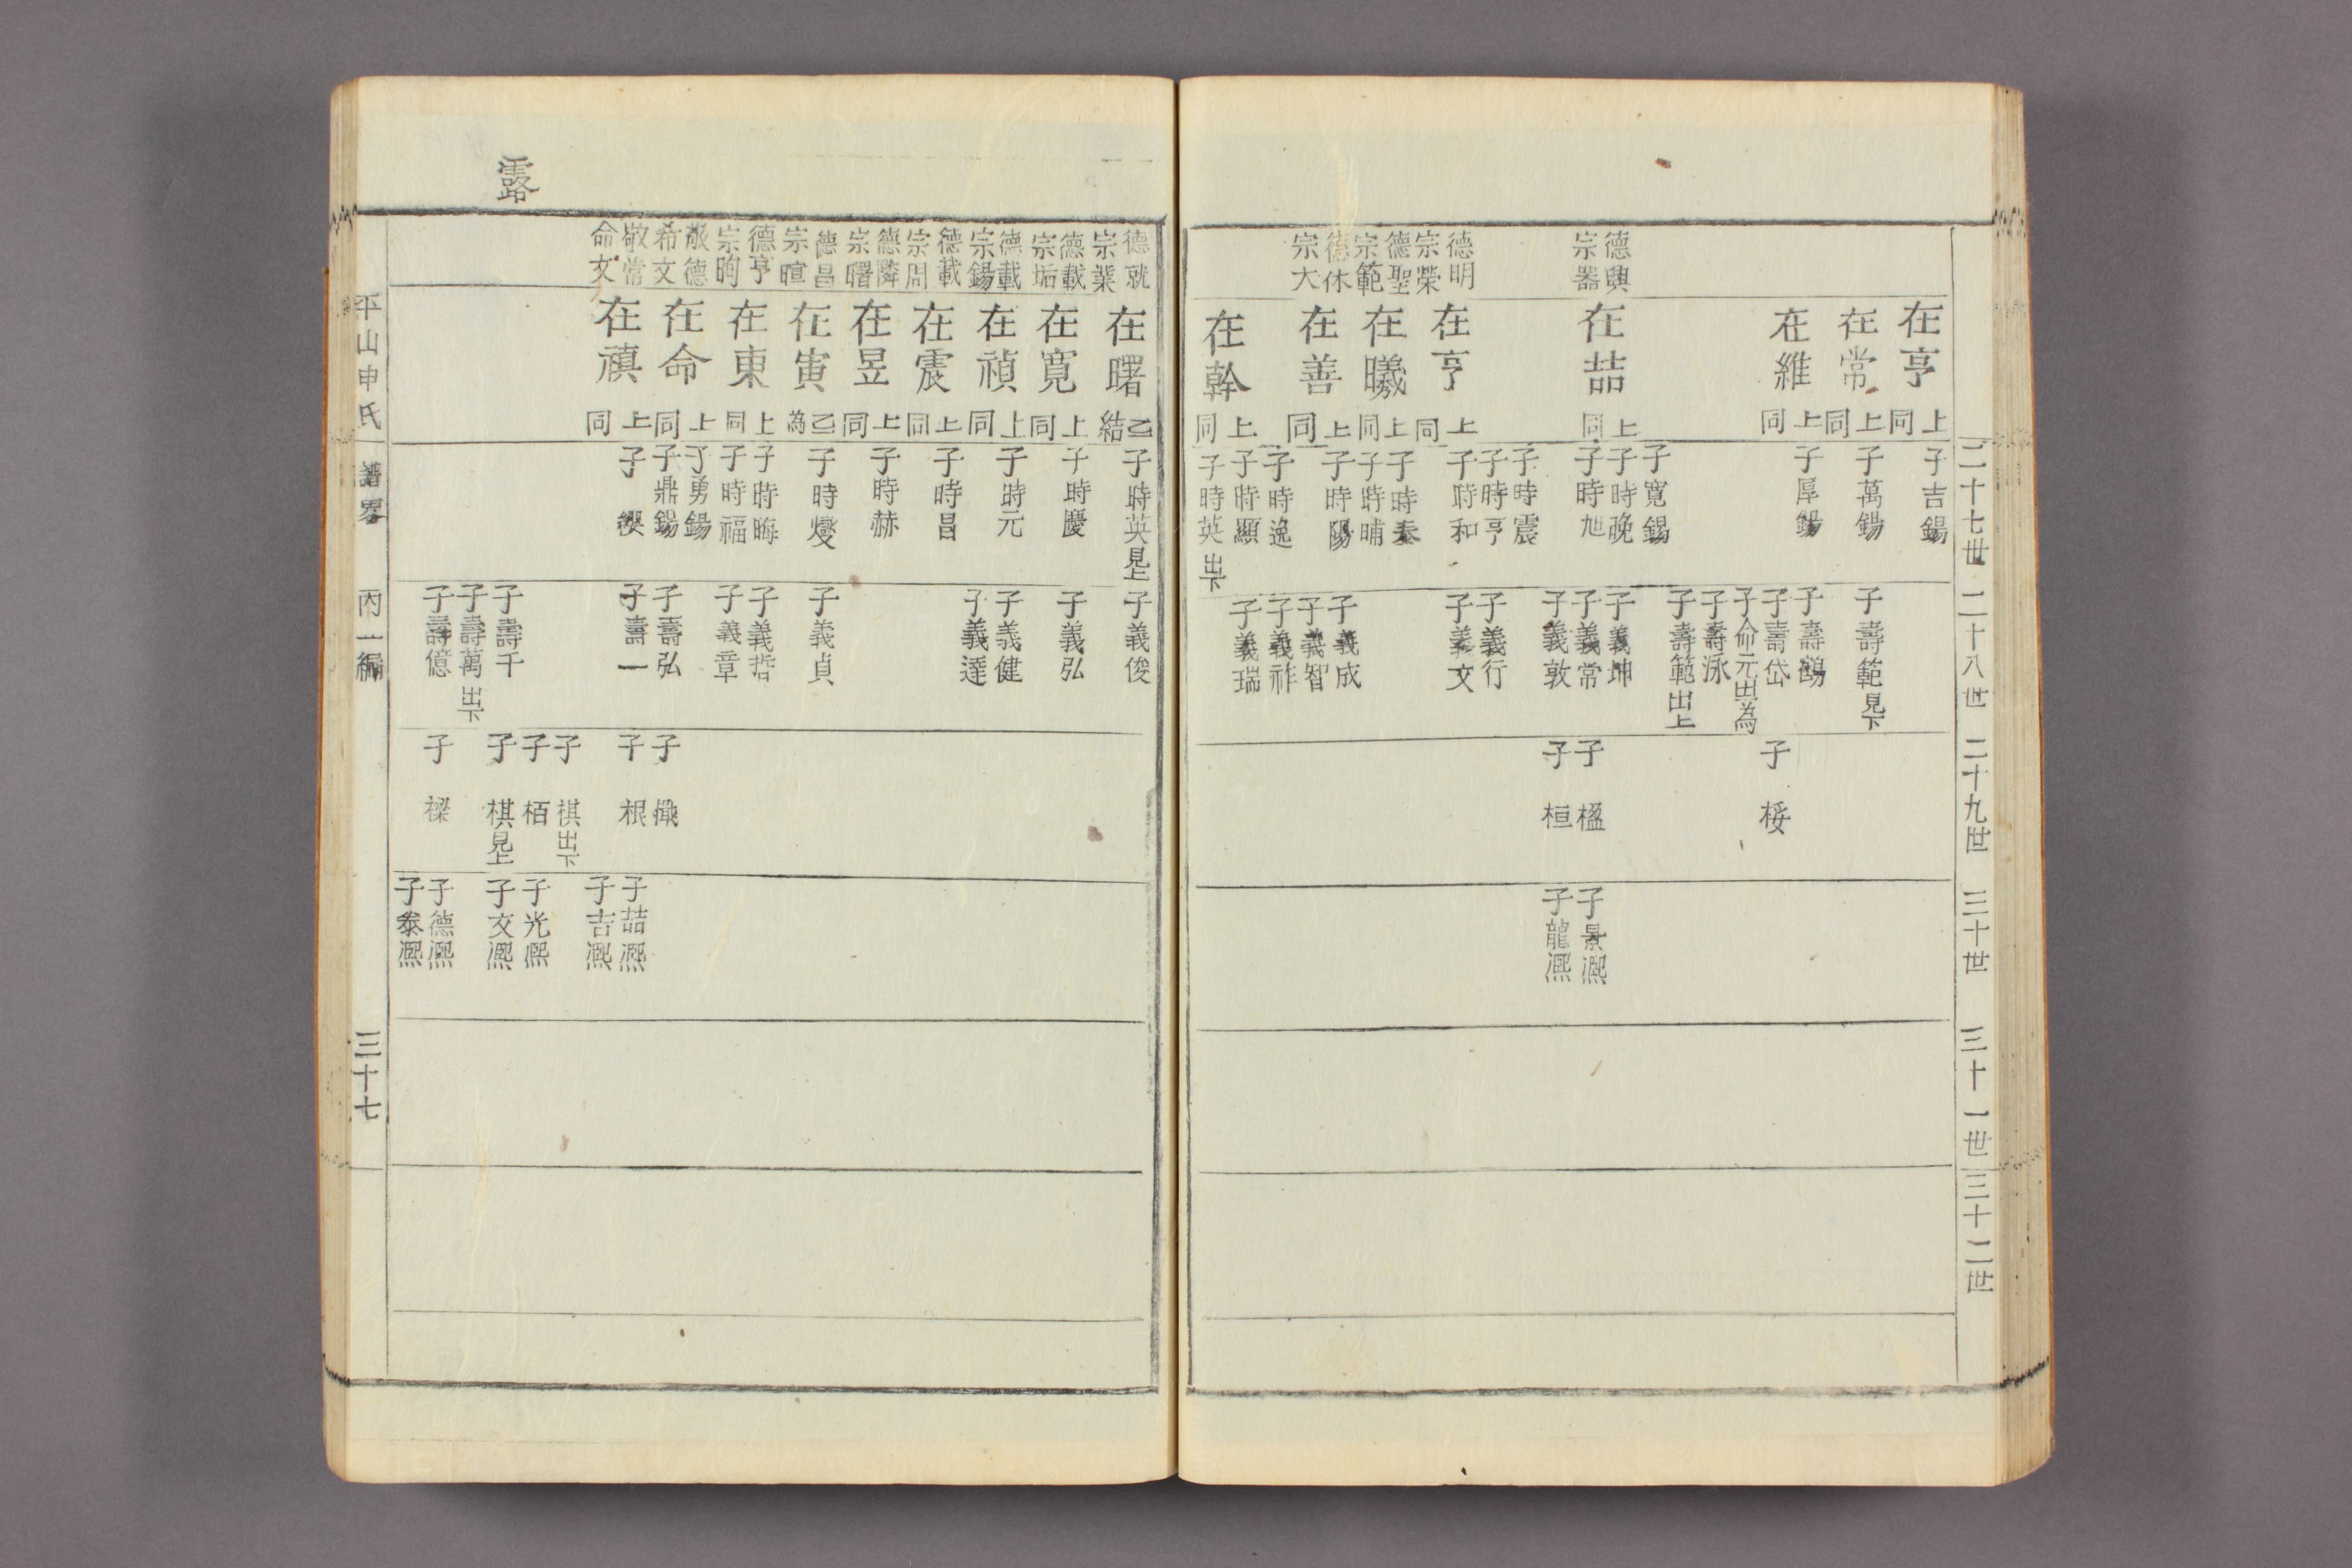 二十七世
二十八世
二十九世
三十世
三十一世
三十二世
德輿
宗器
德明
宗榮
德聖
宗範
德休
宗大
在亨
上同
在常
上同
在維
上同
在喆
上同
在亨
上同
在曦
上同
在善
上同
在幹
上同
子吉錫
子萬錫
子厚錫
子寬錫
子時晚
子時旭
子時震
子時亨
子時和
子時泰
子時晡
子時陽
子時逸
子時顯
子時英出下
子壽範見下
子壽鶴
子壽岱
子命元出為
子壽泳
子壽範出上
子義坤
子義常
子義敦
子義行
子義文
子義成
子義智
子義祚
子義瑞
子桵
子楹
子桓
子景熙
子龍熙
露
德就
宗業
德載
宗垢
德載
宗錫
德載
宗周
德隣
宗曙
德昌
宗暄
德亨
宗昫
敬德
希文
敬常
命文
在曙
乙結
在寬
上同
在禎
上同
在震
上同
在昱
上同
在寅
乙為
在東
上同
在命
上同
在禛
上同
子時英見上
子時慶
子時元
子時昌
子時赫
子時燮
子時晦
子時福
子勇錫
子鼎錫
子纓
子義俊
子義弘
子義健
子義達
子義貞
子義哲
子義章
子壽弘
子壽一
子壽千
子壽萬出下
子壽億
子樴
子根
子棋出下
子栢
子棋見上
子樑
子喆熙
子吉熙
子光熙
子文熙
子德熙
子泰熙
平山申氏
譜畧
丙一編
三十七